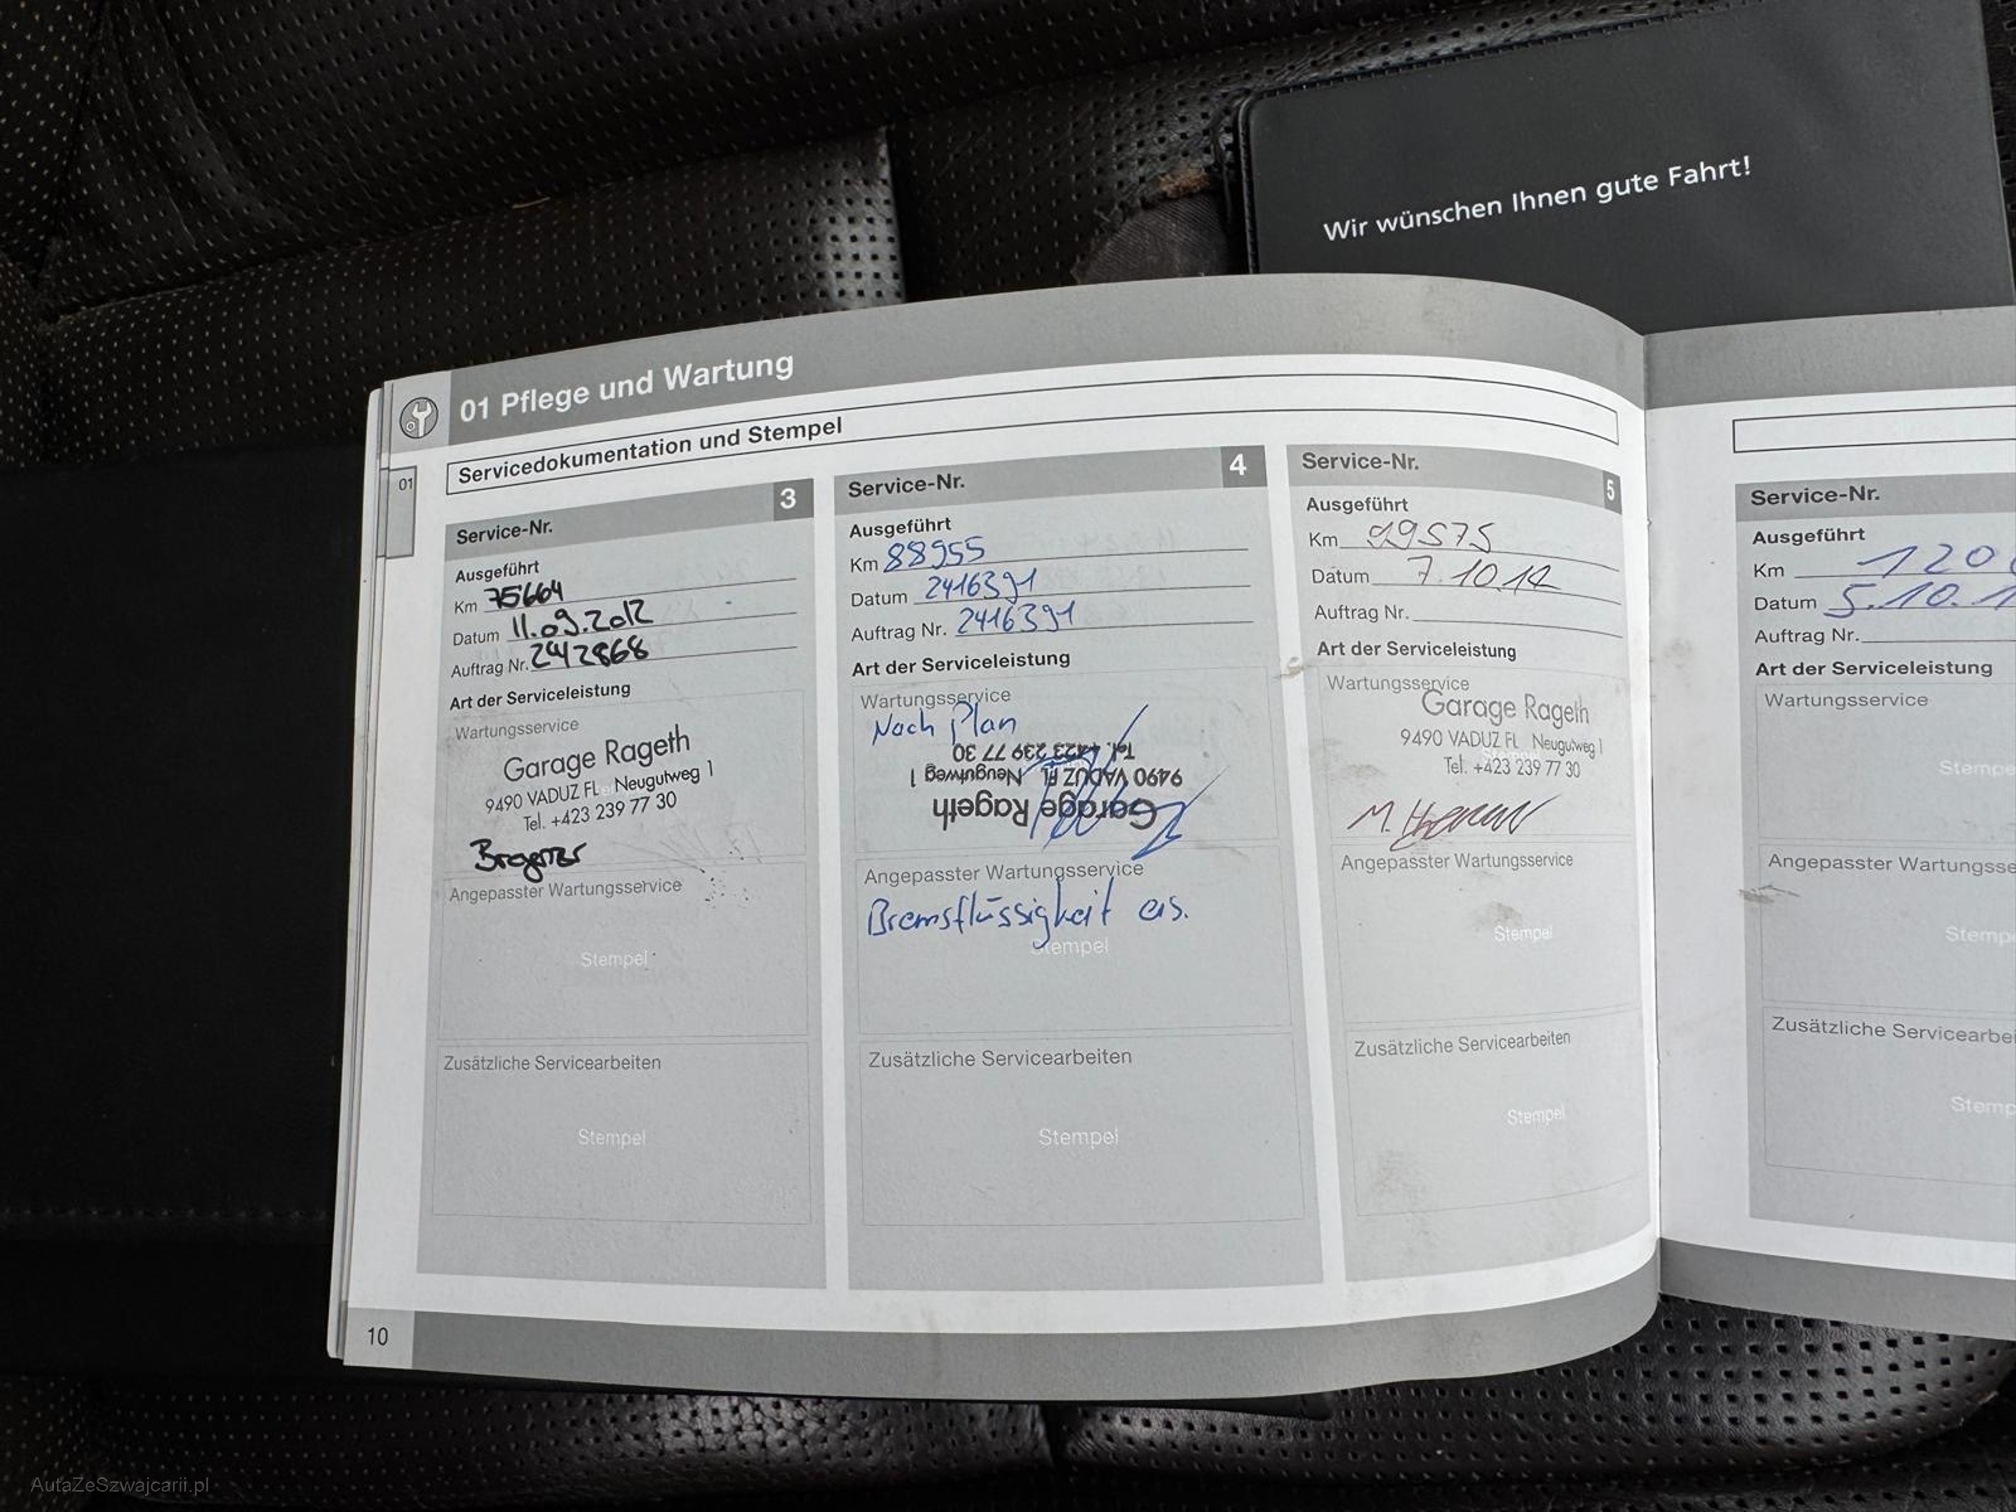 Wir wünschen Ihnen gute Fahrt!
01 Pflege und Wartung
01
Servicedokumentation und Stempel
Service-Nr. 3
Ausgeführt
Km 75664
Datum 11.09.2012
Auftrag Nr. 2412868
Art der Serviceleistung
Wartungsservice
Garage Rageth
9490 VADUZ FL Neugutweg 1
Tel. +423 239 77 30
Angepasster Wartungsservice
Stempel
Zusätzliche Servicearbeiten
Stempel
Service-Nr. 4
Ausgeführt
Km 88955
Datum 2416391
Auftrag Nr. 2416391
Art der Serviceleistung
Wartungsservice
Nach Plan
Garage Rageth
9490 VADUZ FL Neugutweg 1
Tel. +423 239 77 30
Angepasster Wartungsservice
Bremsflüssigkeit ers.
Stempel
Zusätzliche Servicearbeiten
Stempel
Service-Nr. 5
Ausgeführt
Km 99575
Datum 7.10.14
Auftrag Nr.
Art der Serviceleistung
Wartungsservice
Garage Rageth
9490 VADUZ FL Neugutweg 1
Tel. +423 239 77 30
Angepasster Wartungsservice
Stempel
Zusätzliche Servicearbeiten
Stempel
Service-Nr.
Ausgeführt
Km 120
Datum 5.10.1
Auftrag Nr.
Art der Serviceleistung
Wartungsservice
Stempe
Angepasster Wartungsse
Stemp
Zusätzliche Servicearbei
Stemp
10
AutaZeSzwajcarii.pl